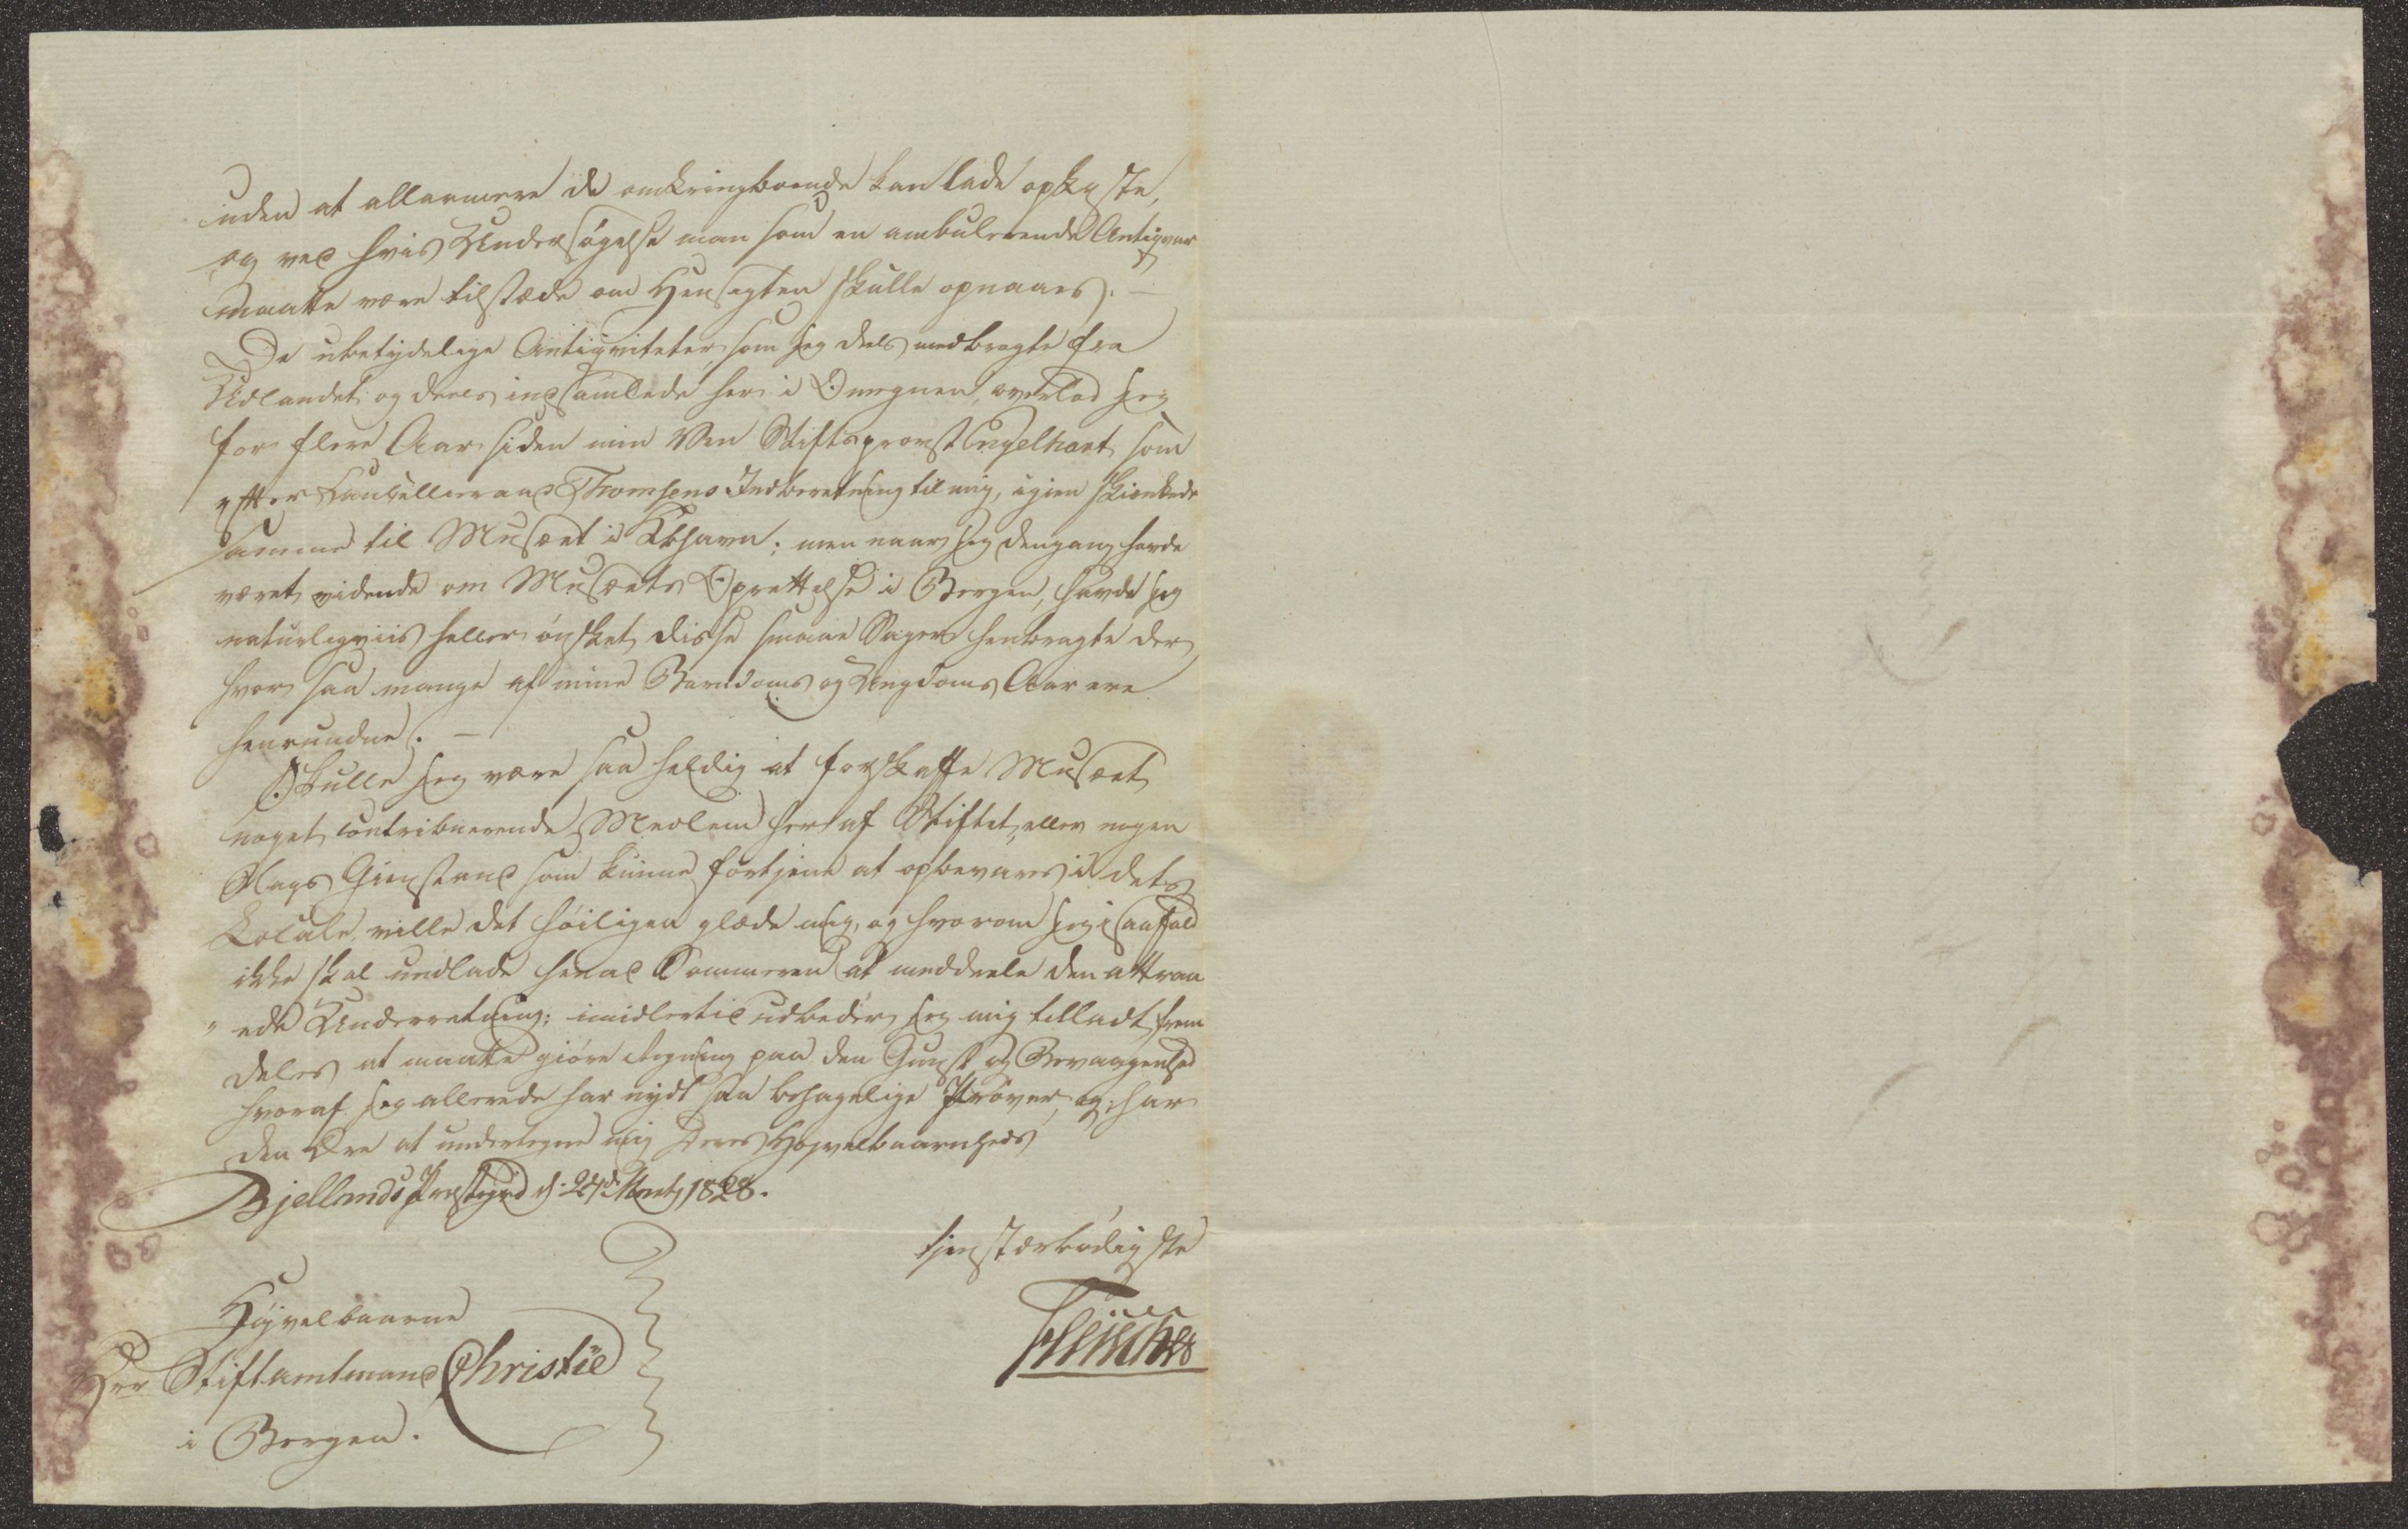 uden at allarmere de omkringboende kan lade opkaste,
og ved hvis Undersøgelse man som en ambulerende Antiqvar
maatte være tilstæde om Hensigten skulle opnaaes. —
De ubetydelige Antiqviteter, som jeg deels medbragte fra
Udlandet og deels indsamlede her i Omegnen, overlod jeg
for flere Aar siden min Ven Stiftsprovst Engelhart, som
efter Cancelleraad Thomsens Indberetning til mig, igien skienkede
samme til Musæet i Kbhavn; men naar jeg dengang havde
været vidende om Musæets Oprettelse i Bergen, havde jeg
naturligviis heller ønsket disse smaae Sager henbragte der,
hvor saa mange af mine Barndoms og Ungdoms Aar ere
henrundne. —
Skulle jeg være saa heldig at forskaffe Musæet
noget contribuerende Medlem her af Stiftet, eller nogen
Slags Gienstand som kunne fortjene at opbevares i dets
Locale, ville det høiligen glæde mig, og hvorom jeg i saafald
ikke skal undlade henad Sommeren at meddeele den attraa
" ede Underretning; imidlertid udbeder jeg mig tilladt frem
deles at maatte giøre Regning paa den Gunst og Bevaagenhed
hvoraf jeg allerede har nydt saa behagelige Prøver, og har
den Ære at undertegne mig Deres Høyvelbaarenheds
Bjellands Præstegrd d: 24de Marts 1828.
tjenstærbødigste
Fleischer
Høyvelbaarne
Herr Stiftamtmand Christie
i Bergen.